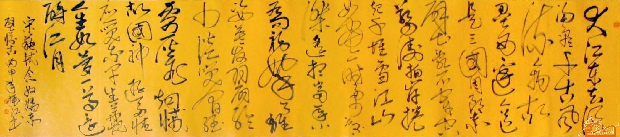 大江东去浪
淘尽千古风
流人物故
垒西边人道
是三国周郎赤
壁乱石穿空
惊涛拍岸卷
起千堆雪江山
如画一时多少
豪杰遥想公
瑾当年小乔初
嫁了雄
姿英发羽扇纶
巾谈笑间樯
橹灰飞烟灭
故国神游多情
应笑我早生华发
人生如梦一尊还
酹江月
宋苏轼念奴娇赤
壁怀古丙申年